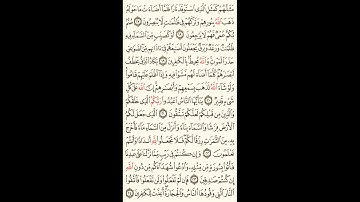 مَثَلُهُمْ كَمَثَلِ ٱلَّذِى ٱسْتَوْقَدَ نَارًا فَلَمَّآ أَضَآءَتْ مَا حَوْلَهُۥ
ذَهَبَ ٱللَّهُ بِنُورِهِمْ وَتَرَكَهُمْ فِى ظُلُمَٰتٍ لَّا يُبْصِرُونَ ١٧ صُمٌّۢ
بُكْمٌ عُمْىٌ فَهُمْ لَا يَرْجِعُونَ ١٨ أَوْ كَصَيِّبٍ مِّنَ ٱلسَّمَآءِ فِيهِ
ظُلُمَٰتٌ وَرَعْدٌ وَبَرْقٌ يَجْعَلُونَ أَصَٰبِعَهُمْ فِىٓ ءَاذَانِهِم مِّنَ ٱلصَّوَٰعِقِ
حَذَرَ ٱلْمَوْتِ وَٱللَّهُ مُحِيطٌۢ بِٱلْكَٰفِرِينَ ١٩ يَكَادُ ٱلْبَرْقُ يَخْطَفُ
أَبْصَٰرَهُمْ كُلَّمَآ أَضَآءَ لَهُم مَّشَوْا۟ فِيهِ وَإِذَآ أَظْلَمَ عَلَيْهِمْ قَامُوا۟
وَلَوْ شَآءَ ٱللَّهُ لَذَهَبَ بِسَمْعِهِمْ وَأَبْصَٰرِهِمْ إِنَّ ٱللَّهَ عَلَىٰ كُلِّ
شَىْءٍ قَدِيرٌ ٢٠ يَٰٓأَيُّهَا ٱلنَّاسُ ٱعْبُدُوا۟ رَبَّكُمُ ٱلَّذِى خَلَقَكُمْ
وَٱلَّذِينَ مِن قَبْلِكُمْ لَعَلَّكُمْ تَتَّقُونَ ٢١ ٱلَّذِى جَعَلَ لَكُمُ
ٱلْأَرْضَ فِرَٰشًا وَٱلسَّمَآءَ بِنَآءً وَأَنزَلَ مِنَ ٱلسَّمَآءِ مَآءً فَأَخْرَجَ
بِهِۦ مِنَ ٱلثَّمَرَٰتِ رِزْقًا لَّكُمْ فَلَا تَجْعَلُوا۟ لِلَّهِ أَندَادًا وَأَنتُمْ
تَعْلَمُونَ ٢٢ وَإِن كُنتُمْ فِى رَيْبٍ مِّمَّا نَزَّلْنَا عَلَىٰ عَبْدِنَا
فَأْتُوا۟ بِسُورَةٍ مِّن مِّثْلِهِۦ وَٱدْعُوا۟ شُهَدَآءَكُم مِّن دُونِ ٱللَّهِ
إِن كُنتُمْ صَٰدِقِينَ ٢٣ فَإِن لَّمْ تَفْعَلُوا۟ وَلَن تَفْعَلُوا۟ فَٱتَّقُوا۟
ٱلنَّارَ ٱلَّتِى وَقُودُهَا ٱلنَّاسُ وَٱلْحِجَارَةُ أُعِدَّتْ لِلْكَٰفِرِينَ ٢٤